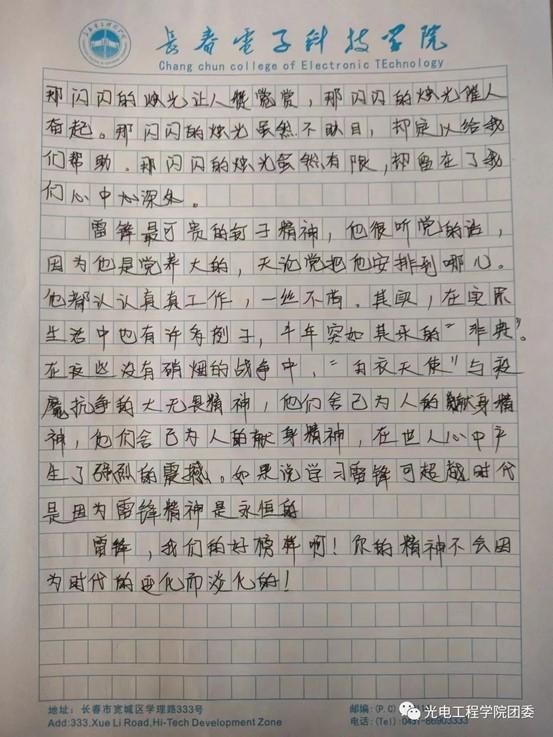 长春电子科技学院
Chang chun college of Electronic TEchnology
那闪闪的烛光让人赞赏，那闪闪的烛光催人
奋起。那闪闪的烛光虽然不耿目，却足以给我
们帮助。那闪闪的烛光虽然有限，却留在了我
们心中心深处。
雷锋最可贵的钉子精神，他很听党的话，
因为他是党养大的，无论党把他安排到哪儿。
他都认认真真工作，一丝不苟。其实，在实际
生活中也有许多例子，千年突如其来的“非典”。
在这些没有硝烟的战争中，“白衣天使”与疫
魔抗争的大无畏精神，他们舍己为人的献身精
神，他们舍己为人的献身精神，在世人心中产
生了强烈的震撼。如果说学习雷锋可超越时代
是因为雷锋精神是永恒的
雷锋，我们的好榜样啊！你的精神不会因
为时代的变化而淡化的！
地址：长春市宽城区学理路333号
邮编：(P.C)
Add:333.Xue Li Road,Hi-Tech Development Zone
电话：(Tel)：0431-86903333
光电工程学院团委